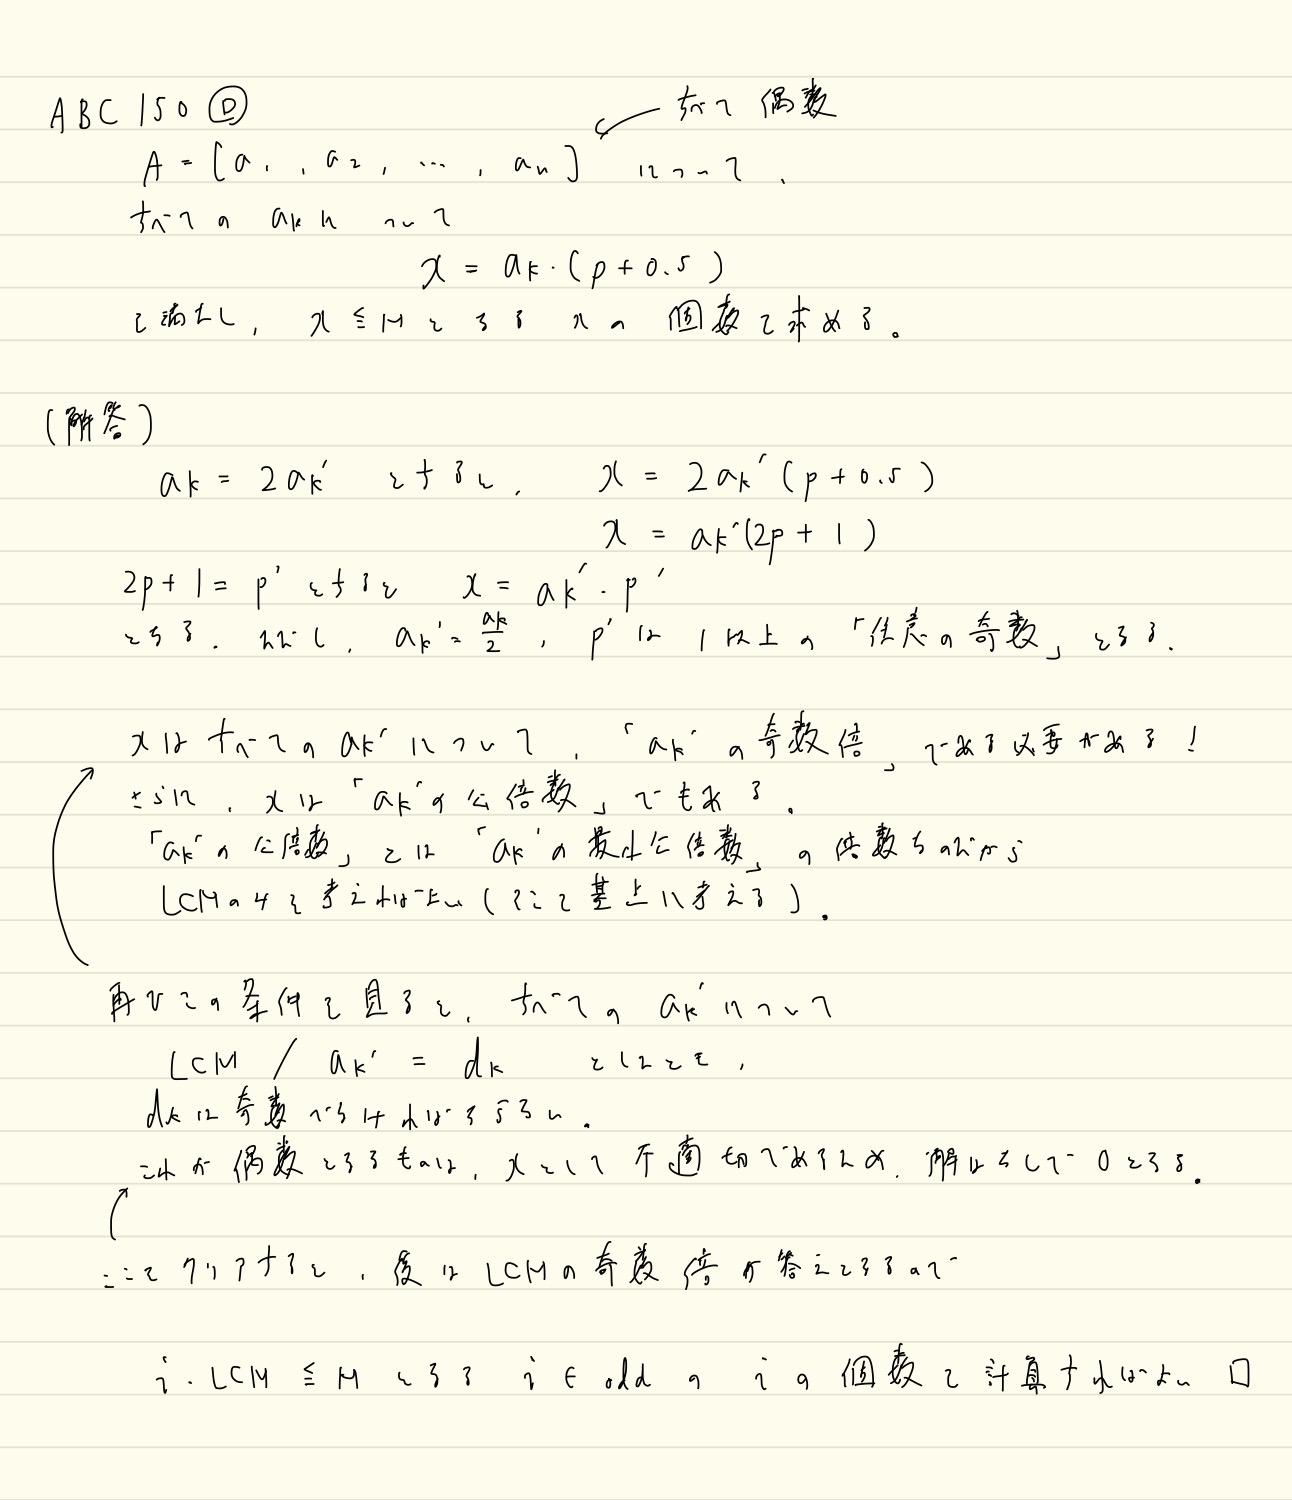 ABC 150 Ⓓ
すべて 偶数
A = [a₁, a₂, …, aₙ] について、
すべての aₖに ついて
x = aₖ・(p + 0.5)
を満たし、x ≦ M となる xの 個数を求める。
(解答)
aₖ = 2aₖ' とすると、 x = 2aₖ'(p + 0.5)
x = aₖ'(2p + 1)
2p + 1 = p' とすると x = aₖ'・p'
となる. ただし、aₖ' = aₖ/2 , p' は 1 以上の「任意の奇数」となる.
xは すべての aₖ' について、「aₖ' の奇数倍」である必要がある!
さらに、xは「aₖ'の公倍数」でもある.
「aₖ'の公倍数」とは「aₖ'の最小公倍数」の倍数なのだから
LCMのみを考えればよい (ここを基点に考える).
再びこの条件を見ると、すべての aₖ'について
LCM / aₖ' = dₖ としたとき、
dₖは奇数でなければならない.
これが 偶数となるものは、xとして 不適切であるため、解はなしで 0となる.
ここをクリアすると、後は LCMの奇数倍が答えとなるので
i・LCM ≦ M となる i ∈ odd の i の 個数を計算すればよい □